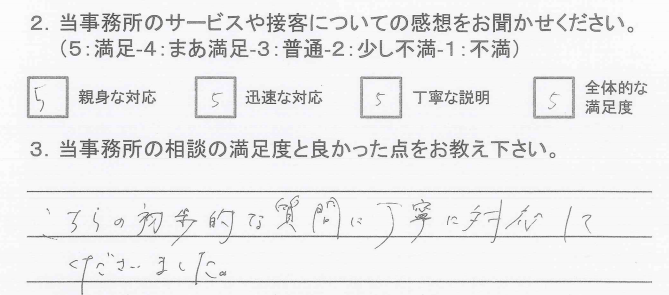 2．当事務所のサービスや接客についての感想をお聞かせください。
（5：満足-4：まあ満足-3：普通-2：少し不満-1：不満）
5 親身な対応 5 迅速な対応 5 丁寧な説明 5 全体的な満足度
3．当事務所の相談の満足度と良かった点をお教え下さい。
こちらの初歩的な質問に丁寧に対応して
くださいました。